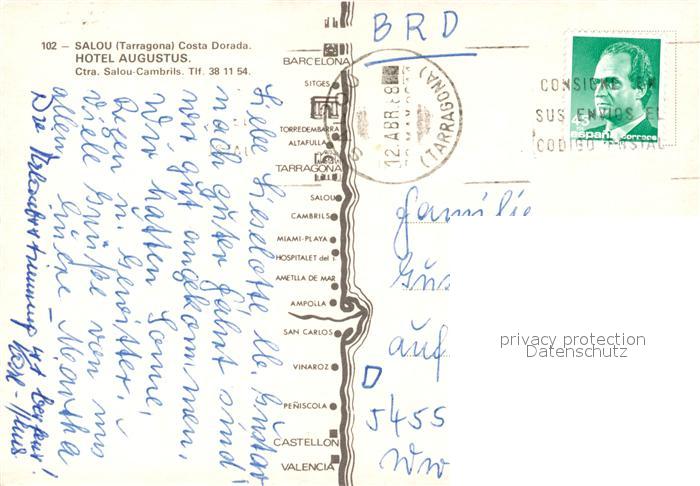 102 — SALOU (Tarragona) Costa Dorada.
HOTEL AUGUSTUS.
Ctra. Salou-Cambrils. Tlf. 38 11 54.
BARCELONA
SITGES
TORREDEMBARRA
ALTAFULLA
TARRAGONA
SALOU
CAMBRILS
MIAMI-PLAYA
HOSPITALET del I.
AMETLLA DE MAR
AMPOLLA
SAN CARLOS
VINAROZ
PEÑISCOLA
CASTELLON
VALENCIA
Liebe Lieselotte, lb. Gustav
nach guter Fahrt sind
wir gut angekommen,
Wir hatten Sonne,
Regen u. Gewitter.
Viele Grüße von uns
allen, Eure Martha
Die Urlaubsstimmung ist bestens!
BRD
12.ABR.88
(TARRAGONA)
CONSIGNE EN
SUS ENVIOS EL
CODIGO POSTAL
45
españa correos
Familie
auf
D
5455
privacy protection
Datenschutz